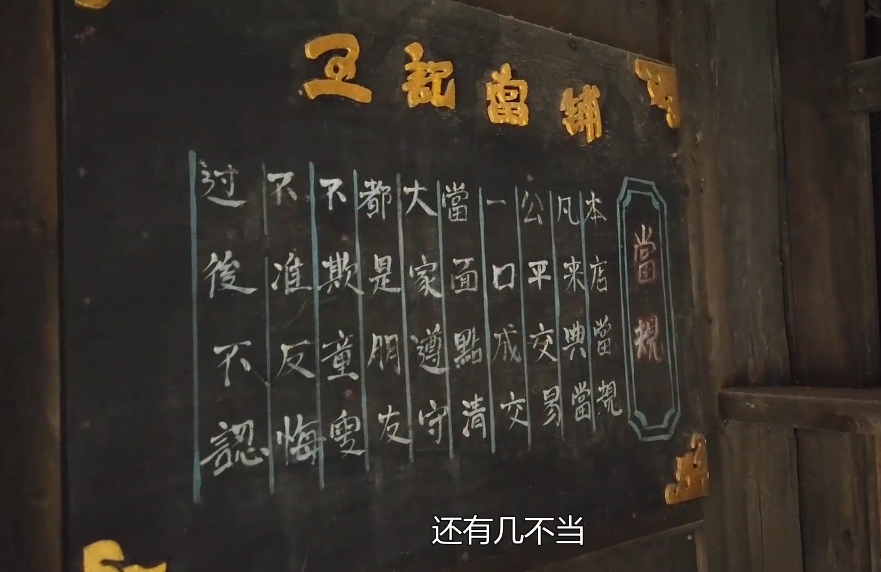 王記當舖
當規
本店當規
凡来典當
公平交易
一口成交
當面點清
大家遵守
都是朋友
不欺童叟
不准反悔
过後不認
还有几不当